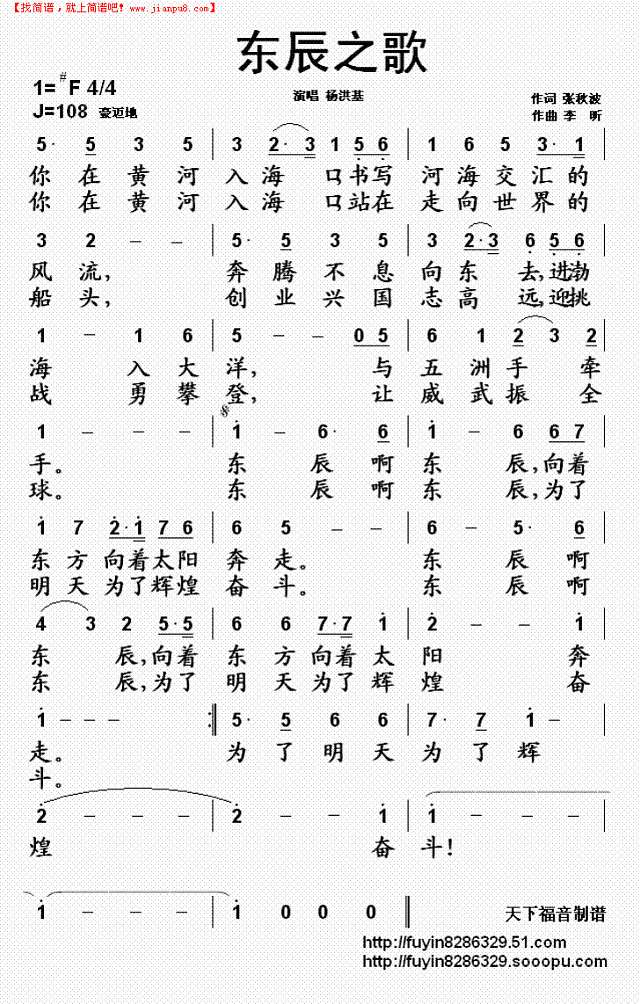 【找简谱，就上简谱吧! www.jianpu8.com】
东辰之歌
1=#F 4/4
J=108 豪迈地
演唱 杨洪基
作词 张秋波
作曲 李 昕
5· 5 3 5 | 3 2·3 1 5 6 | 1 6 5 3·1 |
你在黄河 入海 口书写 河海交汇的
你在黄河 入海 口站在 走向世界的
3 2 – – | 5· 5 3 5 | 3 2·3 6 5·6 |
风流, 奔腾不息 向东 去,进渤
船头, 创业兴国 志高 远,迎挑
1 – 1 6 | 5 – – 0 5 | 6 1 2 3 2 |
海 入大 洋, 与 五洲手 牵
战 勇攀 登, 让 威武振 全
1 – – – | 1 – 6· 6 | 1 – – 6 7 |
手。 东 辰啊 东 辰,向着
球。 东 辰啊 东 辰,为了
1 7 2·1 7 6 | 6 5 – – | 6 – 5· 6 |
东方向着太阳 奔走。 东 辰啊
明天为了辉煌 奋斗。 东 辰啊
4 3 2 5·5 | 6 6 7·7 1 | 2 – – 1 |
东 辰,向着 东方向着太 阳 奔
东 辰,为了 明天为了辉 煌 奋
1 – – – :‖ 5· 5 6 6 | 7· 7 1 – |
走。 为了明天 为了辉
斗。
2 – – – | 2 – – 1 | 1 – – – |
煌 奋 斗!
1 – – – | 1 0 0 0 ‖
天下福音制谱
http://fuyin8286329.51.com/
http://fuyin8286329.sooopu.com/